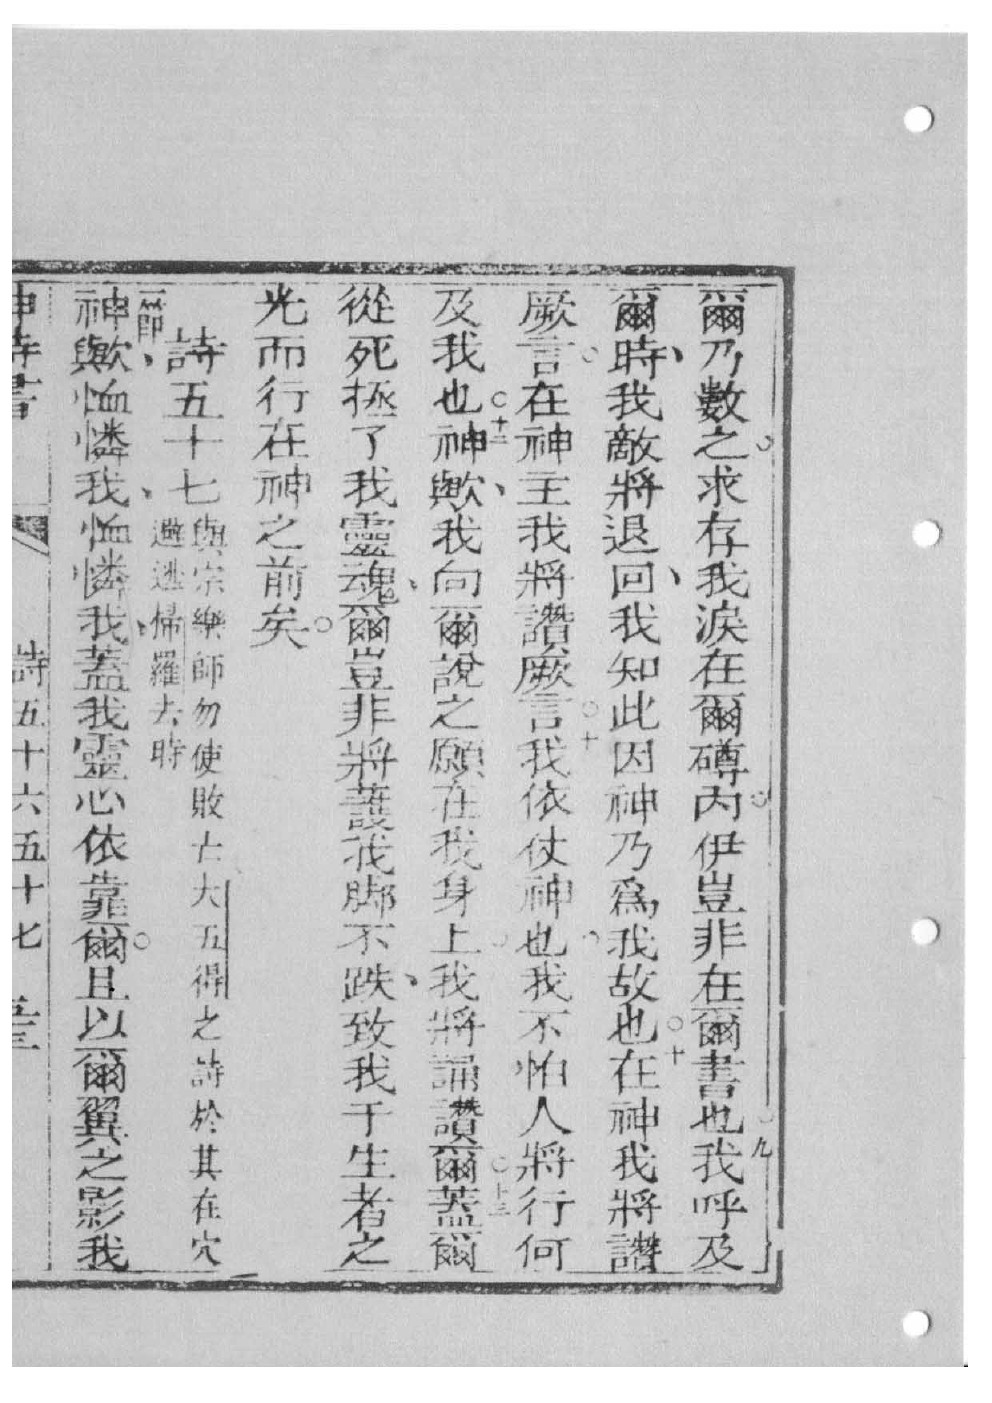 爾乃數之。求存我淚在爾罇內。伊豈非在爾書也。九我呼及
爾時、我敵將退回、我知此因神乃爲我故也。十在神我將讚
厥言。在神主我將讚厥言。十我依仗神也。我不怕人將行何
及我也。十二神歟、我向爾說之願在我身上。我將誦讚爾。十三蓋爾
從死拯了我靈魂、爾豈非將護我脚不跌、致我于生者之
光而行在神之前矣。
詩五十七
與宗樂師勿使敗亡大五得之詩於其在穴
避逃掃羅去時
一節
神歟、恤憐我、恤憐我、蓋我靈心依靠爾。且以爾翼之影我
神詩書 詩五十六五十七 三